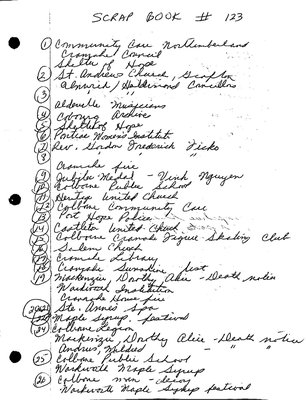 SCRAP BOOK # 123
1 Community Care Northumberland
Cramahe Council
Shelter of Hope
2 St. Andrews Church, Grafton
Alnwick / Haldimand Councillors
3
Alderville Musicians
4 Cobourg Archive
5 Shelter of Hope
6 Women's Institute
7 Rev. Gordon Frederick Ficko
8
Cramahe fire
9 Jubilee Medal - Vinh Nguyen
10 Colborne Public School
11 United Church
12 Colborne Community Care
13 Port Hope Police
14 Castleton United Church
15 Colborne Cramahe Figure Skating Club
16 Salem Church
17 Cramahe Library
18 Cramahe Sunshine
19 Mackenzie, Dorothy Alice - Death notice
Warkworth Institution
Cramahe House fire
20 21 Ste. Anne's Spa
22 23 Maple Syrup festival
24 Colborne Legion
Mackenzie, Dorothy Alice - Death notice
Andrus, Mildred - " "
25 Colborne Public School
Warkworth Maple Syrup
26 Colborne men -
Warkworth Maple Syrup festival